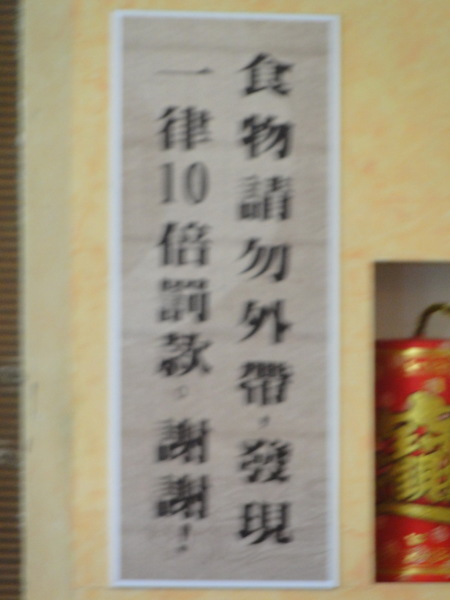 食物請勿外帶，發現
一律10倍罰款。謝謝！